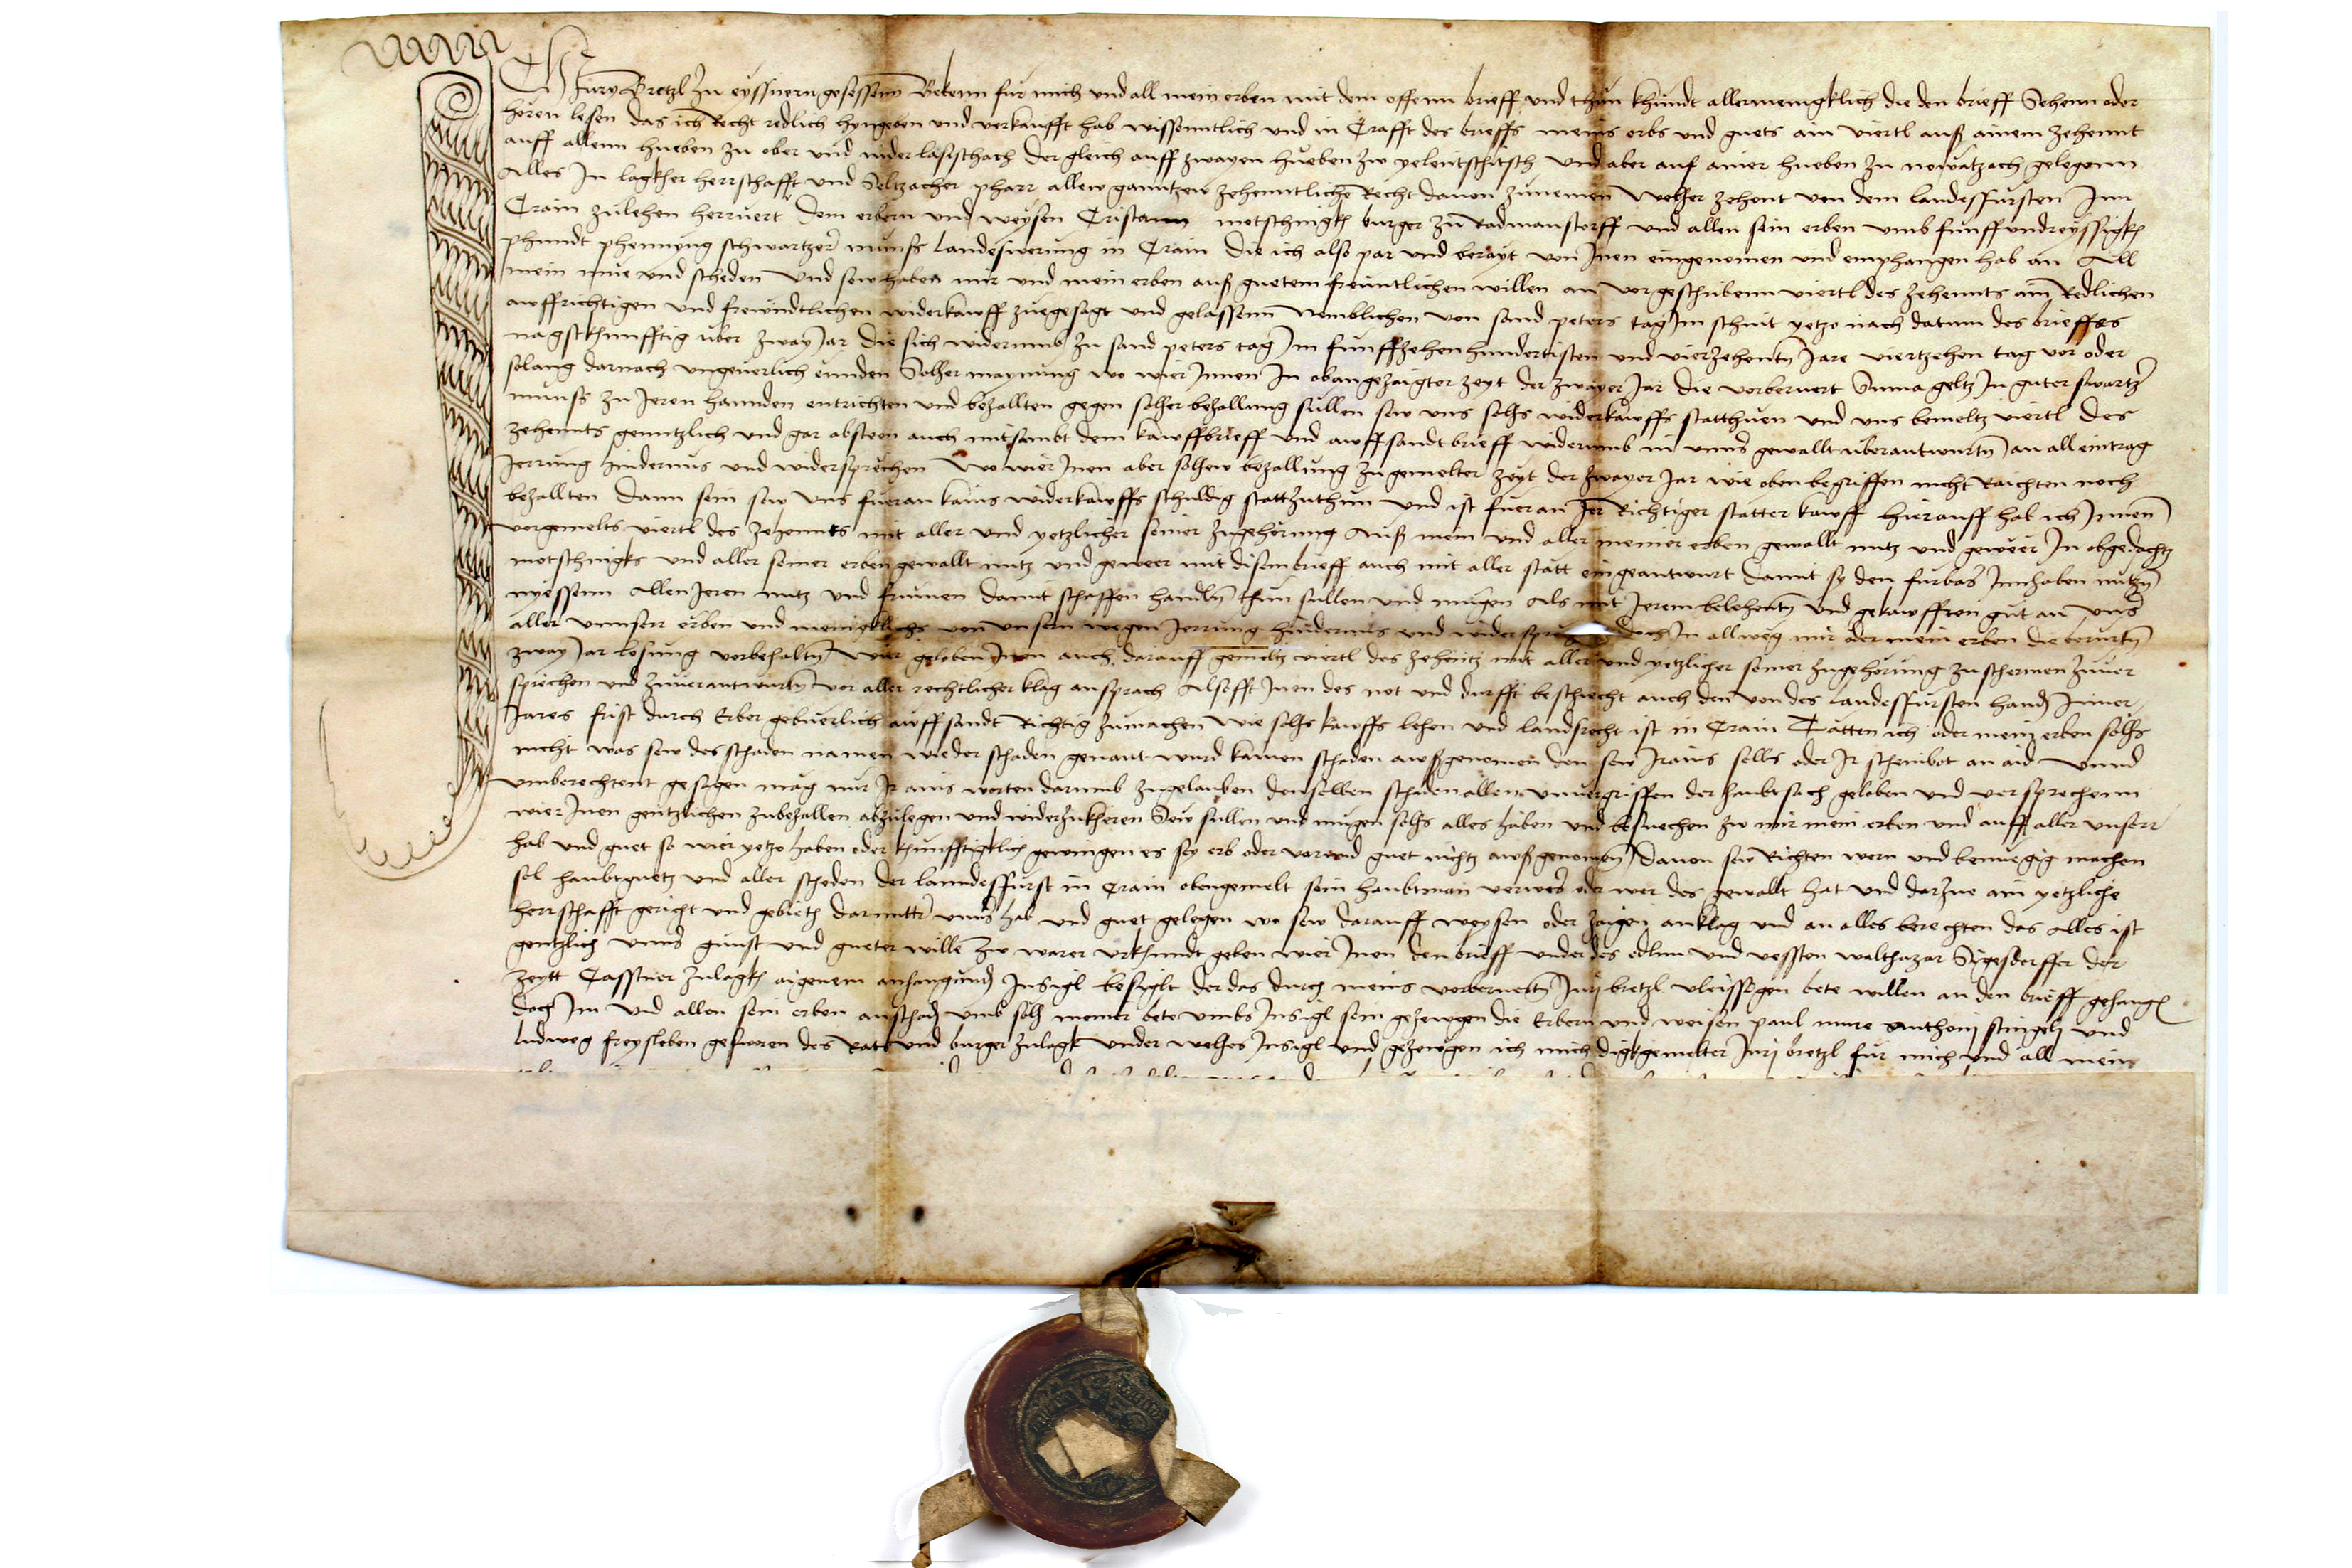 Ich Jury Bretzl zu eyssnern gesessenn Bekenn fur mich und all mein erben mit dem offenn brieff und thun khundt allermenigklich die den brieff Sehenn oder
horen lesen das ich Recht redlich hyngeben und verkaufft hab wissenntlich und in Crafft des brieffs meins erbs und guets ain viertl auß ainem zehennt
auff allenn hueben zu ober und nider lasischach der gleich auff zwayen hueben zw pelentschitsch und aber auf ainer hueben zu newatzach gelegenn
Alles In lagkher herrschafft und Seltzacher pharr allew ganntzew zehenntliche Recht davon zunemen welher zehent von dem landesfursten Inn
Crain zulehen herruert dem erbern und weysen Cristann motschnigkh burger zu Radmanstorff und allen sein erben umb funffundreyssigkh
phundt phennyng schwartzer munss landeswerung in Crain die ich also par und berayt von Inen eingenomen und emphangen hab an All
mein mue und scheden Und sew haben mir und mein erben auß guetem freuntlichen willen an vorgeschribenn viertl des zehennts ain Redlichen
awffrichtigen und frewndtlichen widerkawff zuegesagt und gelassenn Nemblichen von sand peters tag Im schnit yetzo nach datum des brieffes
nagstkhunfftig uber zway Jar die sich widerumb zu sand peters tag Im funffzehenhundertisten und vierzehentn Jare viertzehen tag vor oder
solang darnach ungeverlich ennden Solher maynung wo wier Innen In obangezaigter zeyt der zwayer Jar die vorberuert Suma geltz In guter swartzer
munss zu Jeren hannden entrichten und bezallten gegen solher bezallung sullen sew uns solhs widerkawffs statthuen und uns bemeltz viertl des
zehennts genntzlich und gar absteen auch mitsambt dem kawffbrieff und awffsandtbrieff widerumb in unnser gewallt uberantwurtn an all eintrag
Jerrung hindernus und widersprechen Wo wier Inen aber solhew bezallung zu gemelter zeyt der zwayer Jar wie oben begriffen nicht Raichten noch
bezallten Dann sein sew uns fueran kains widerkawffs schuldig stattzuthun und ist fueran Jer Richtiger statter kawff Hierauff hab ich Innen
vorgemelts viertl des zehennts mit aller und yetzlicher seiner zugehorung Auß mein und aller meiner erben gewallt nutz und geweer In obgedachtz
motschnigks und aller seiner erben gewallt nutz und geweer mit disem brieff auch mit aller statt eingeantwurt Damit sy den furbas Innhaben nutzn
nyessenn Allen Jeren nutz und frumen damit schaffen handln thun sullen und mugen Als mit Jerem belehentn und gekawfften gut an unnser
aller unnserr erben und menigklichs von unsern wegen Jerrung hindernus und doch In allweg mir oder mein erben die berurtn
zway Jar losung vorbehaltn Wier geloben Inen auch darauff gemeltz viertl des zehentz mit aller und yetzlicher seiner zugehorung zu schermen zuver
sprechen und zuverantwurtn vor aller rechtlicher klag ansprach Alsofft Inen des not und durfft beschiecht auch den von des Landesfursten hand Inner
Jares frist durch Erber gebuerlich awffsandt Richtig zumachen wie solhs kauffs lehen und landsrecht ist in Crain Tätten ich oder mein erben solhs
nicht was sew des schaden namen wie der schaden genant wurd kainen schaden awßgenomen den sew Irains selbs oder Ir scheinbot an aid unnd
umberechtent gesagen mag nur Ir ains worten darumb zugelauben denselben schaden allen unvergriffen der haubtsach geloben und versprechenn
wier Inen gentzlichen zubezallen abzulegen und widerzukheren Sew sullen und mugen solhs alles haben und besuechen zw mir mein erben und auff aller unserr
hab und guet so wier yetzo haben oder khunfftigklich gewingen es sey erb oder varend guet nichtz awßgenomen Davon sew Richten wern und benuegig machen
sol haubtguetz und aller scheden der lanndesfurst in Crain obengemelt sein haubtman verweser oder wer des gewallt hat und darzue ain yetzliche
herrschafft gericht und gebieth darunter unnser hab und guet gelegen wo sew darauff weysen oder zaigen anklag und an alles berechten das Alles ist
gentzlich unnser gunst und gueter wille Zw warer urkhundt geben wier Inen den brieff under des edlnn und vessten walthazar Sigesdorffer der
zeytt Casstner zu lagkh aigenem anhangund Insigl besiglt der das durch meins vorberuertn Jurj bretzl vleissigen bete willen an den brieff gehangen
doch Im und allen sein erben anschad umb solh meiner bete umbs Insigl sein gezewgen die Erbern und weisen paul mure Anthonj stingelj und
ludweg freysleben gesworen des Rats und burger zu lagk under welhes Insigl und gezewgen ich mich digkgemelter Jurj bretzl fur mich und all mein